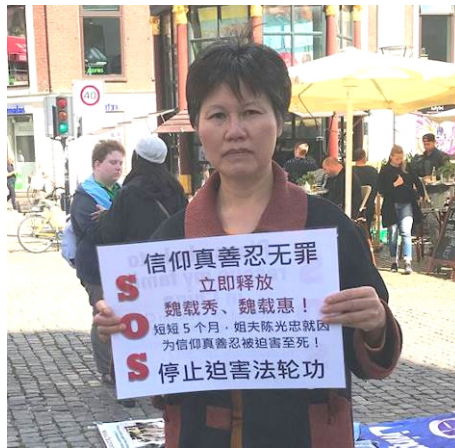 40
信仰真善忍无罪
立即释放
魏载秀、魏载惠！
短短5个月，姐夫陈光忠就因
为信仰真善忍被迫害至死！
SOS
停止迫害法轮功